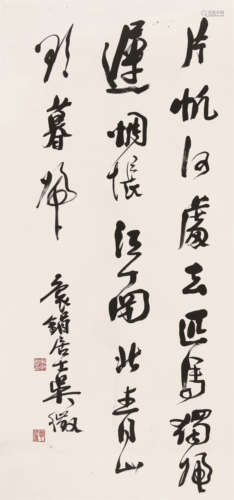 片帆何處去匹馬獨歸
遲惆悵江南北青山
欲暮時
袌鋗居士吳徵